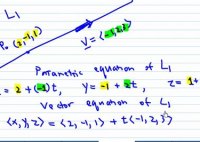 L₁
P₀ (2,-1,1)
V = <-1,2,3>
Parametric equation of L₁
= 2 + (-1)t, y = -1 + 2t, z = 1+
Vector equation of L₁
<x,y,z> = <2,-1,1> + t<-1,2,3>